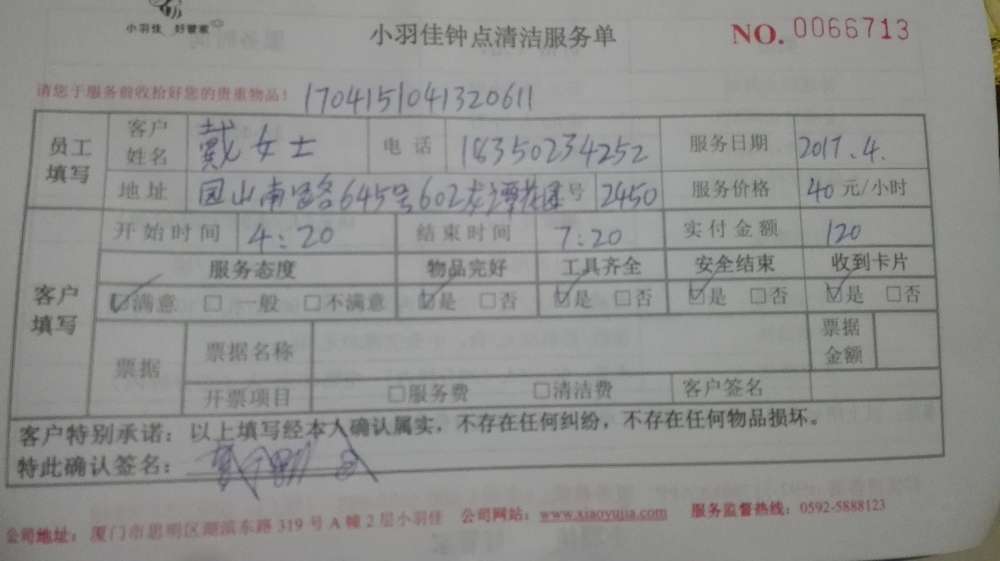 小羽佳 好管家
小羽佳钟点清洁服务单
NO. 0066713
请您于服务前收拾好您的贵重物品! 1704151041320611
员工填写 客户姓名 戴女士 电话 18350234252 服务日期 2017.4.
地址 园山南路645号602龙潭花园 号 2450 服务价格 40元/小时
客户填写 开始时间 4:20 结束时间 7:20 实付金额 120
服务态度 物品完好 工具齐全 安全结束 收到卡片
☑满意 □一般 □不满意 ☑是 □否 ☑是 □否 ☑是 □否 ☑是 □否
票据 票据名称 票据金额
开票项目 □服务费 □清洁费 客户签名
客户特别承诺：以上填写经本人确认属实，不存在任何纠纷，不存在任何物品损坏。
特此确认签名：
公司地址：厦门市思明区湖滨东路319号A幢2层小羽佳 公司网站：www.xiaoyujia.com 服务监督热线：0592-5888123